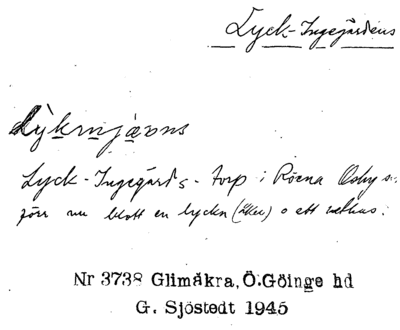 Lyck-Ingegärdens
Lyck-Ingegärds-torp i Röena Osby s:n
förr nu blott en lycka (åker) o ett uthus.
Nr 3738 Glimåkra, Ö.Göinge hd
G. Sjöstedt 1945